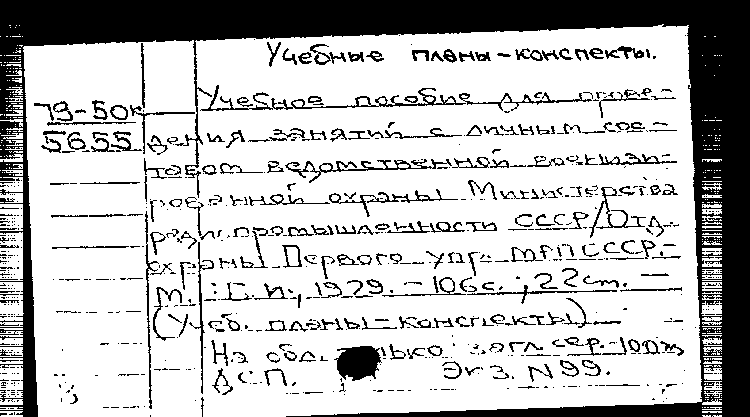 Учебные планы-конспекты.
79-50к
5655
Учебное пособие для прове-
дения занятий с личным сос-
тавом ведомственной военизи-
рованной охраны Министерства
радиопромышленности СССР/Отд.
охраны Первого упр. МРП СССР.-
М.: Б.и., 1979. - 106с.; 22см. —
(Учеб. планы-конспекты)
На обл. только загл. сер. - 100
ДСП. Экз. N 99.